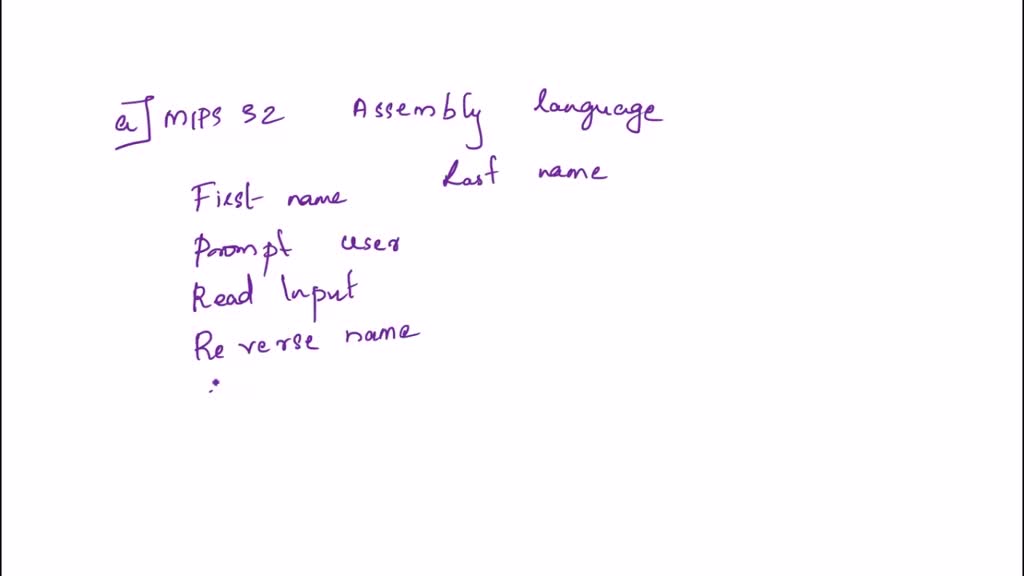 a] MIPS 32 Assembly language
First name Last name
Prompt user
Read Input
Reverse name